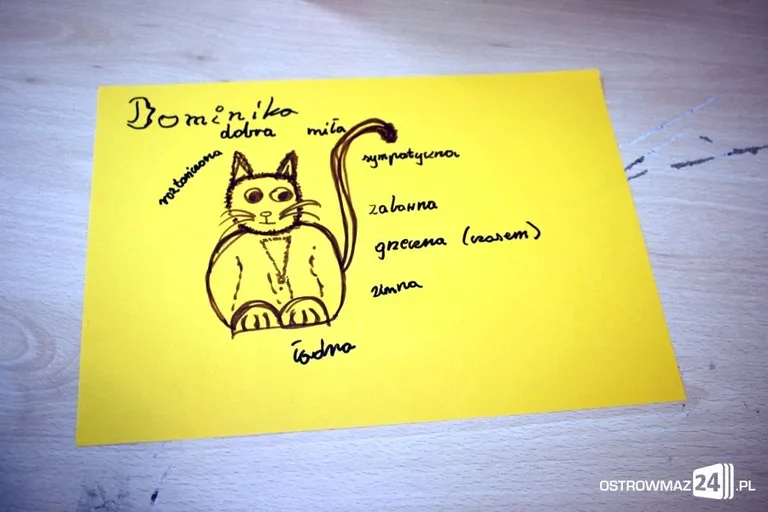 Dominika
dobra
miła
roztańczona
sympatyczna
zabawna
grzeczna (czasem)
ładna
OSTROWMAZ24.PL